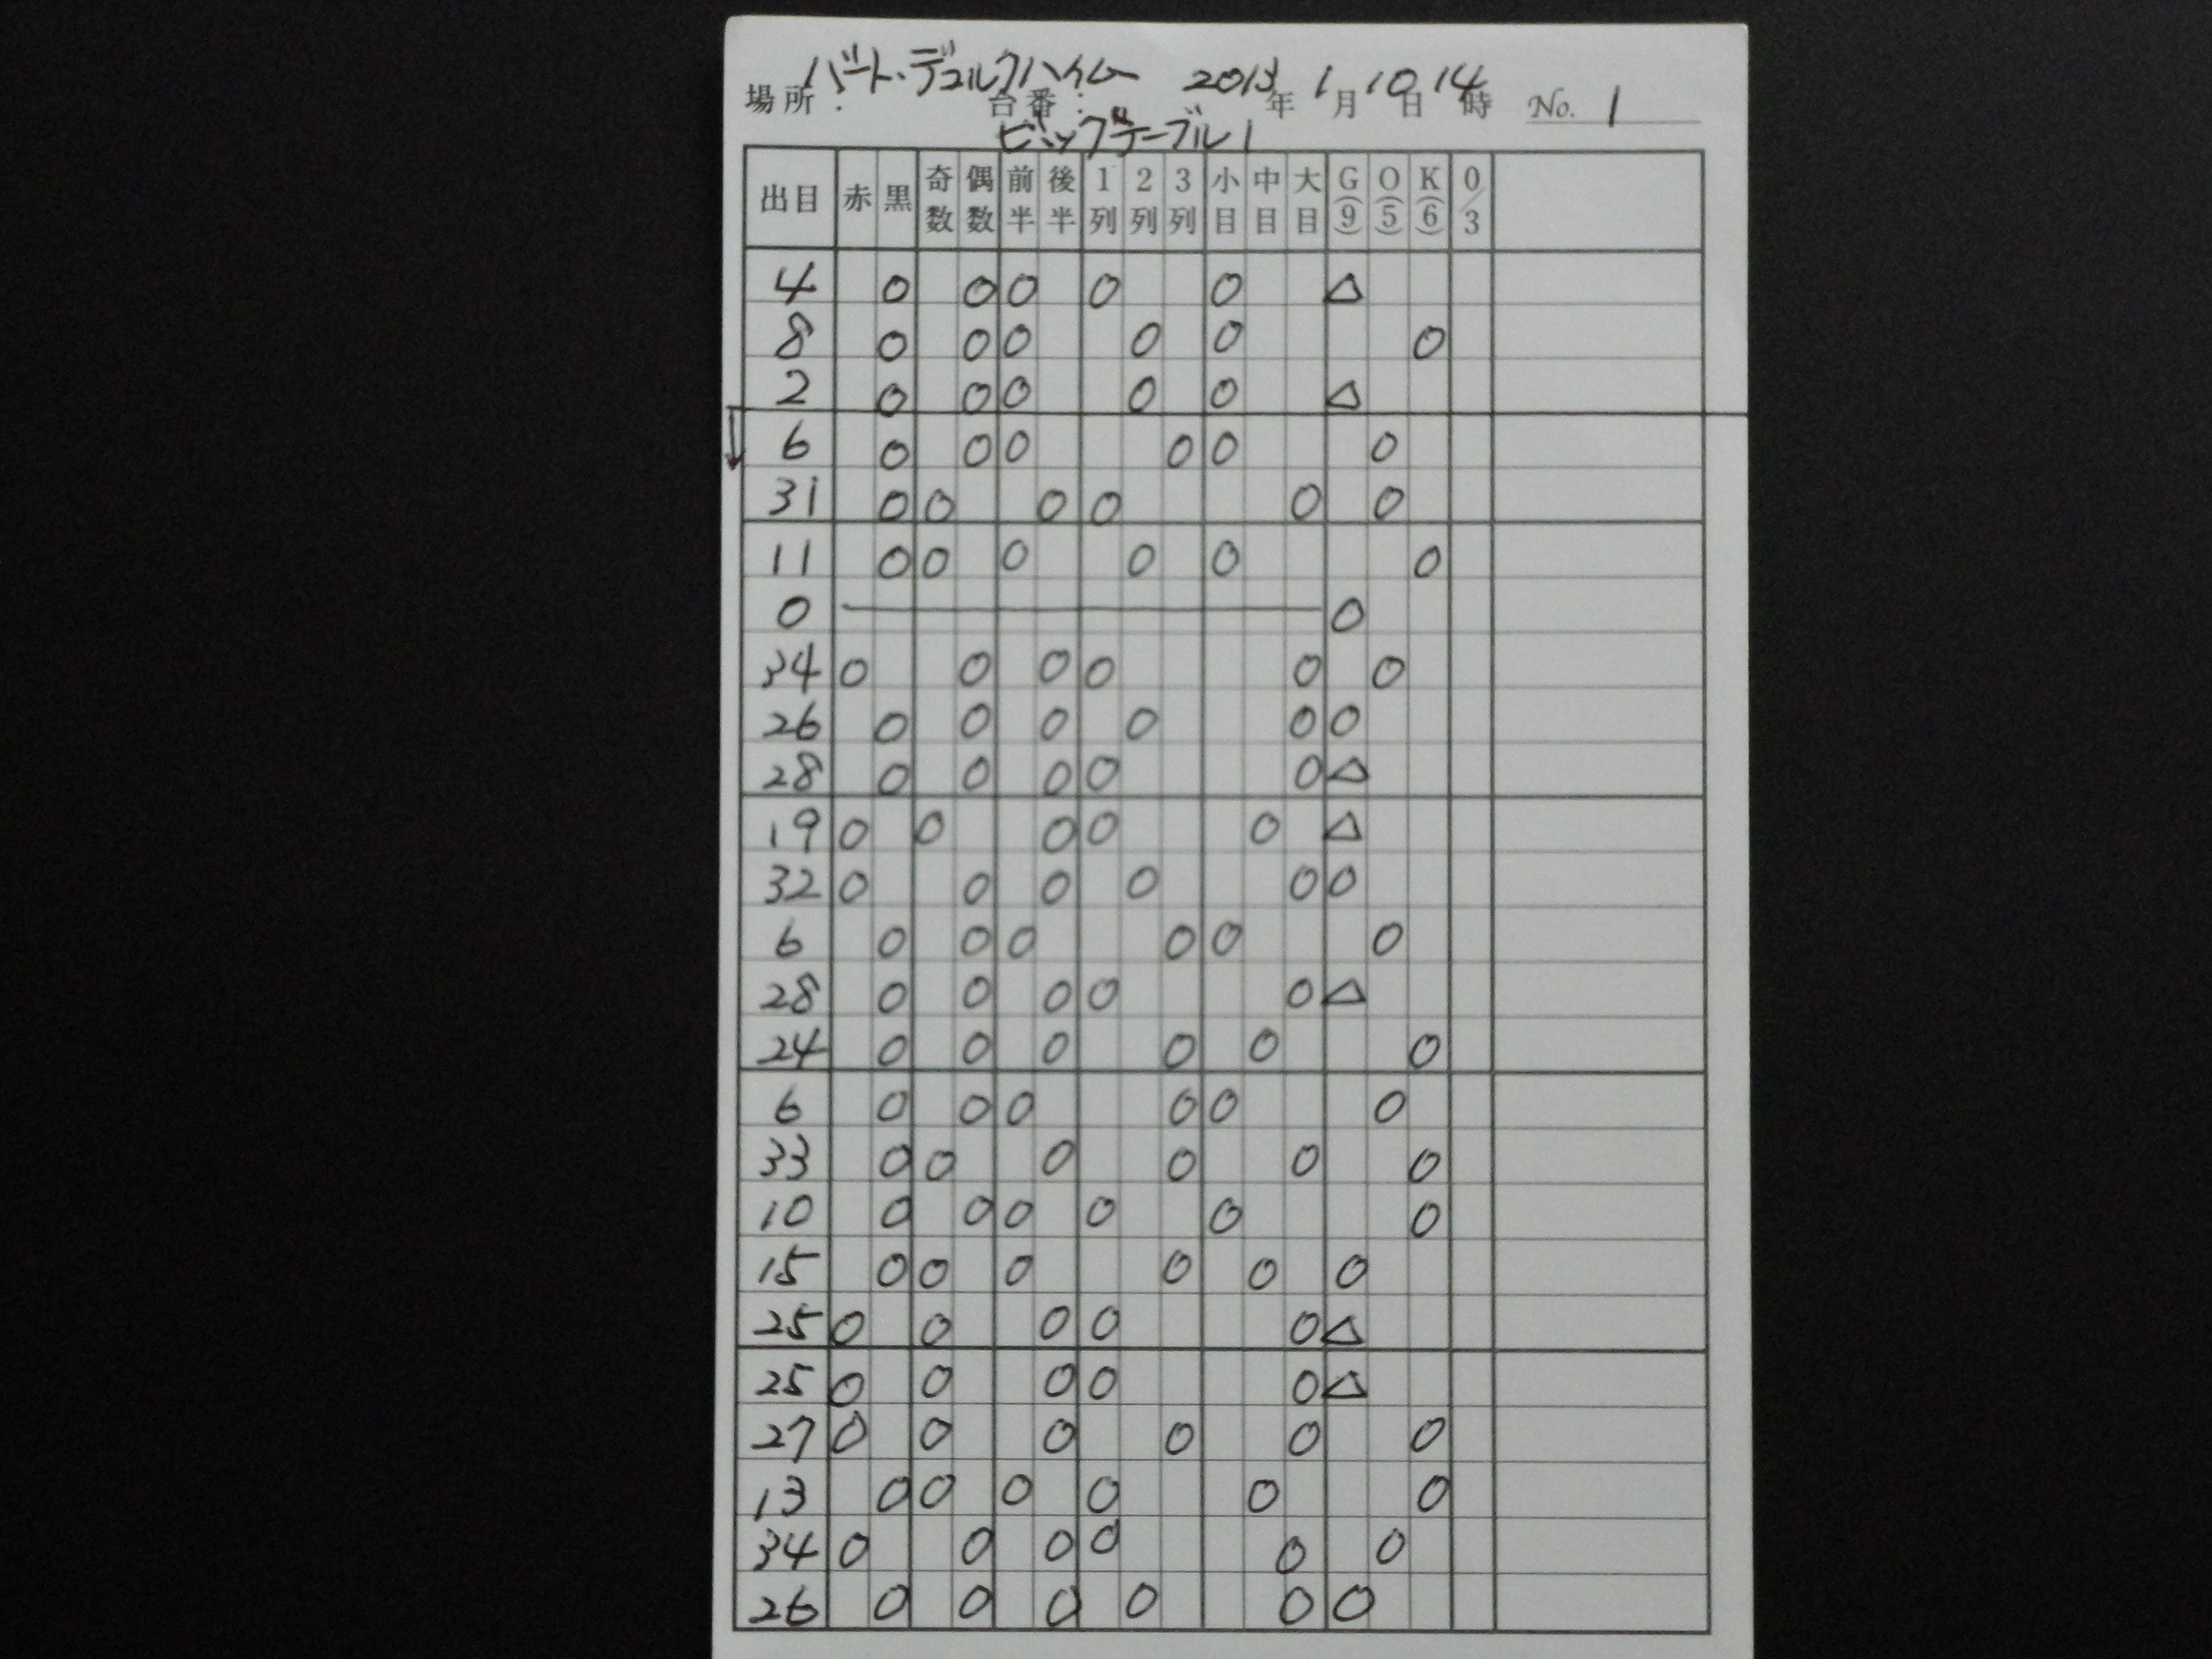 バート・デュルクハイム 2013 1 10 14
場所： 台番： 年 月 日 時 No. 1
ビッグテーブル1
出目 赤 黒 奇数 偶数 前半 後半 1列 2列 3列 小目 中目 大目 G(9) O(5) K(6) 0/3
4 O O O O O △
8 O O O O O O
2 O O O O O △
6 O O O O O O
31 O O O O O O
11 O O O O O O
0 O
34 O O O O O O
26 O O O O O O
28 O O O O O △
19 O O O O O △
32 O O O O O O
6 O O O O O O
28 O O O O O △
24 O O O O O O
6 O O O O O O
33 O O O O O O
10 O O O O O O
15 O O O O O O
25 O O O O O △
25 O O O O O △
27 O O O O O O
13 O O O O O O
34 O O O O O O
26 O O O O O O